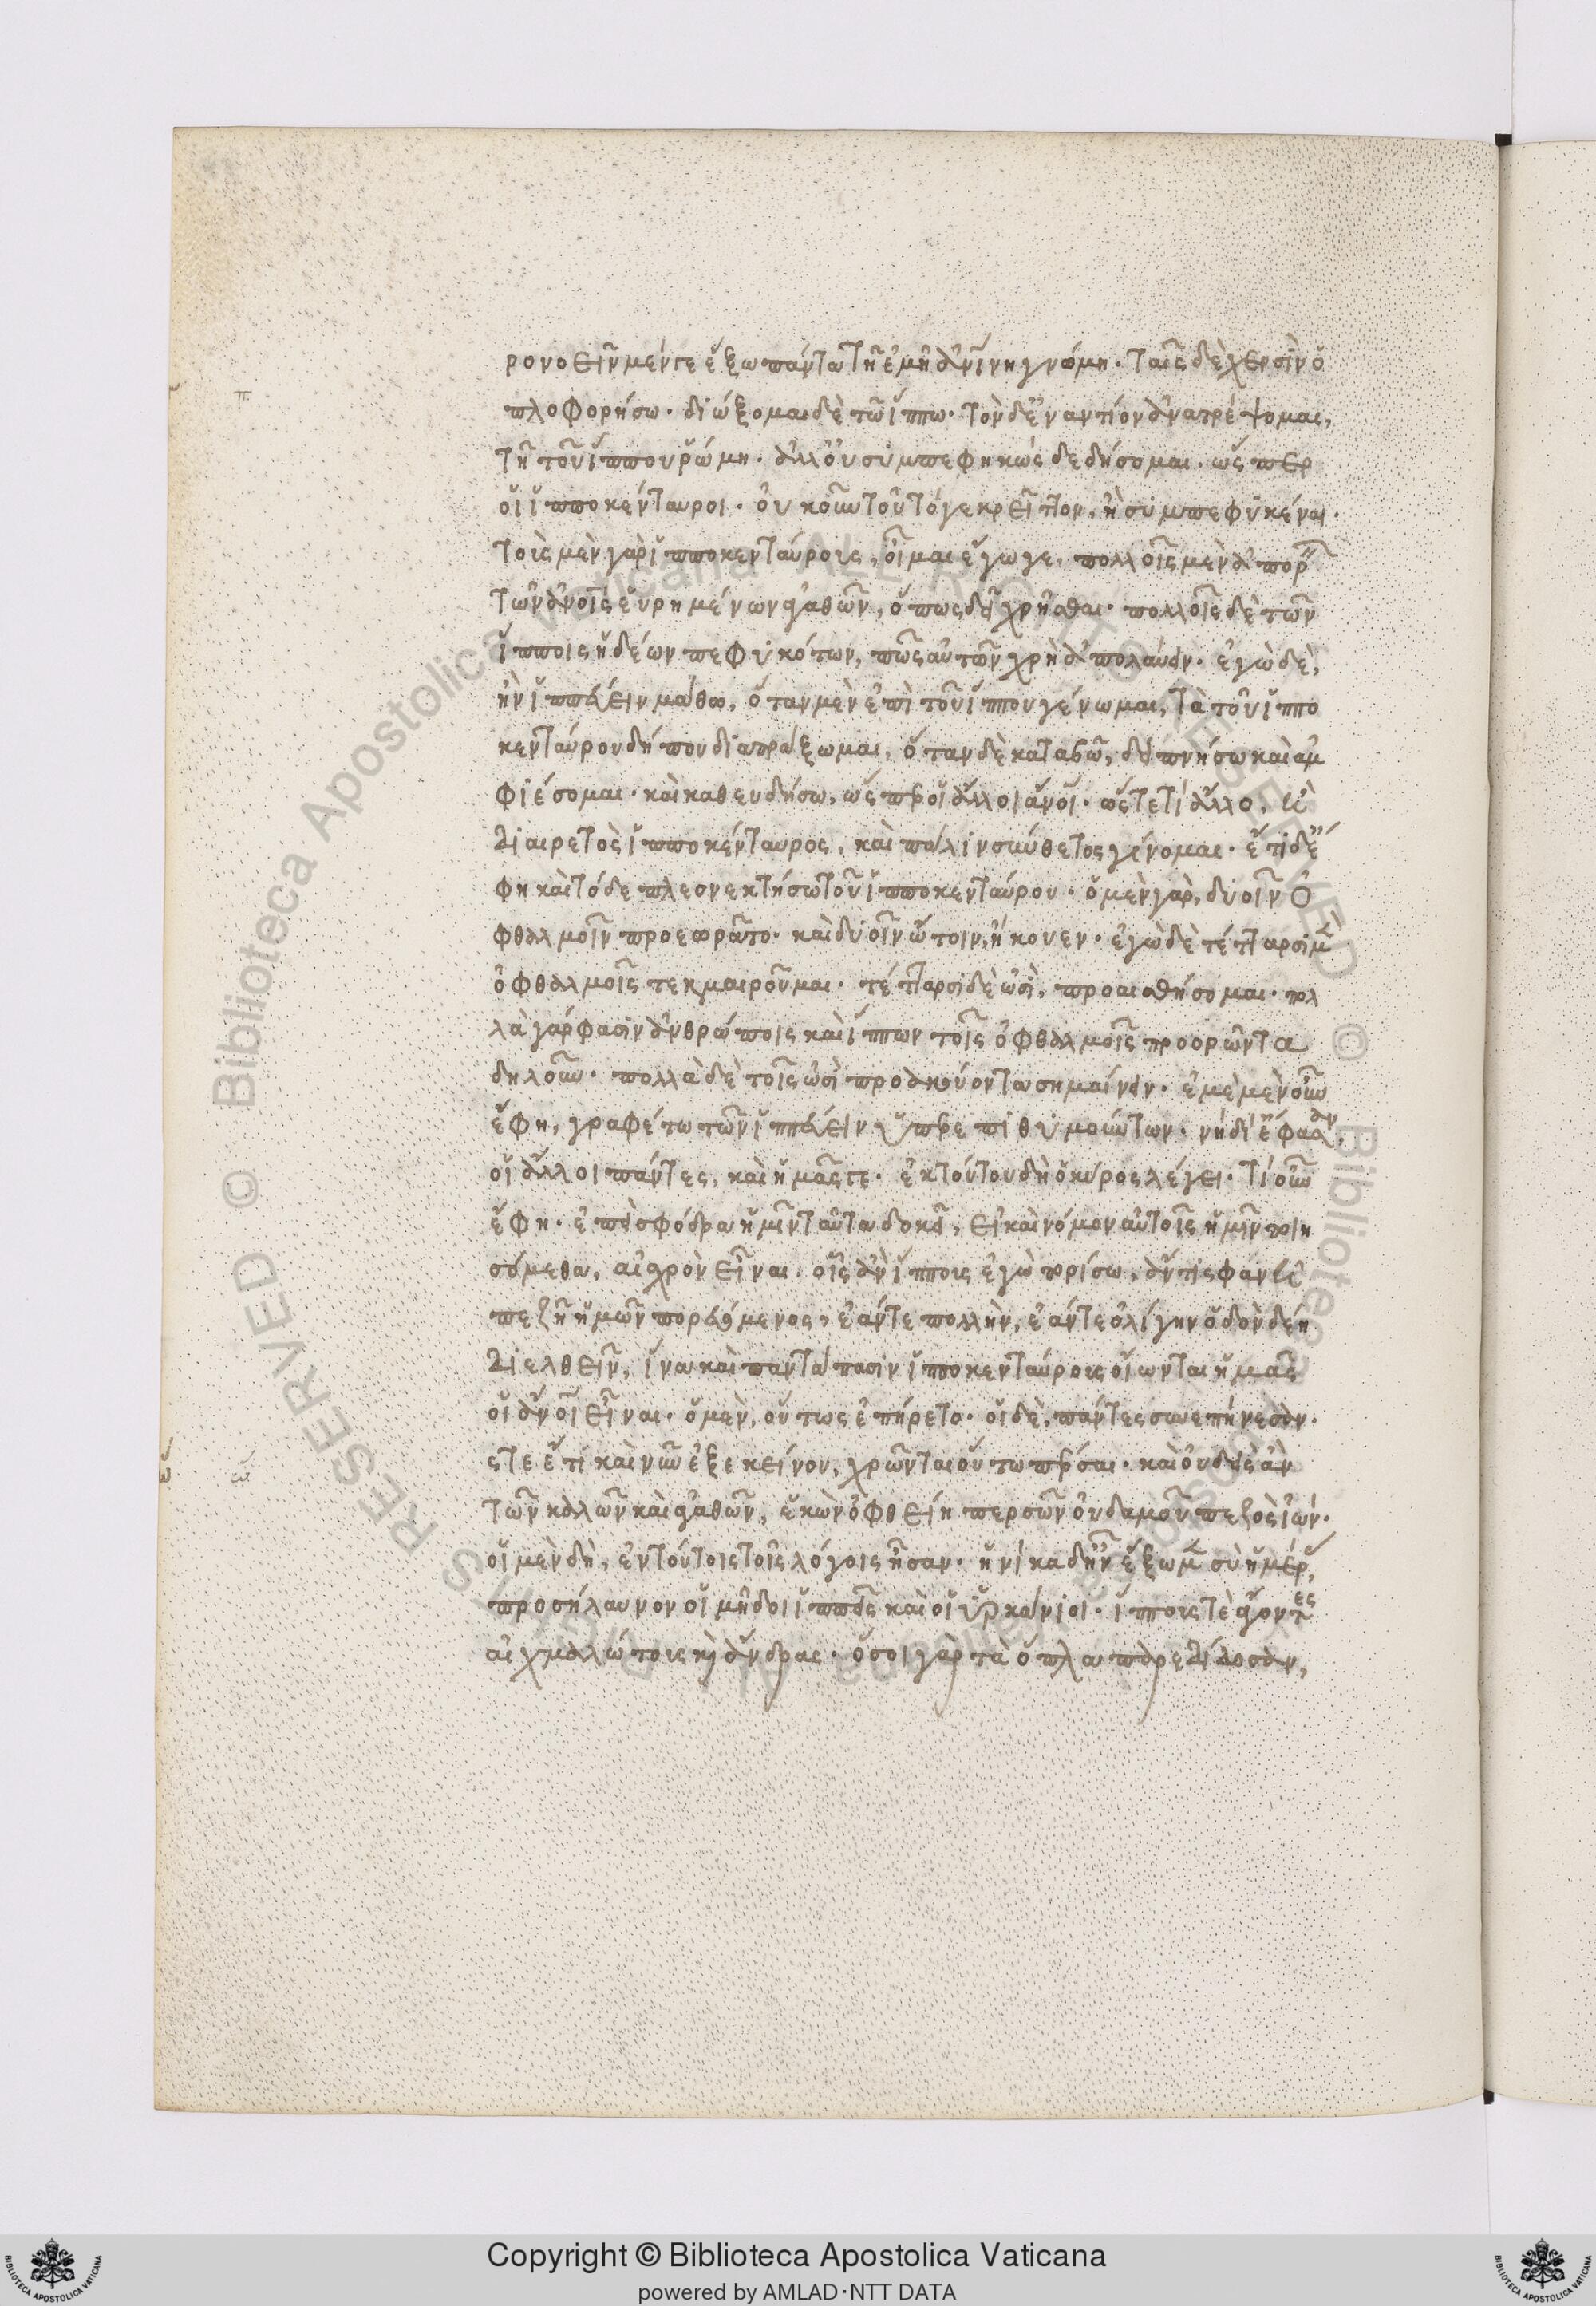 π
ρονοεῖν μέν γε ἕξω πάντα τῆ ἐμῆ ἀν̅ινη γνώμη. ταῖς δὲ χερσὶν ὁ
πλοφορήσω. διώξομαι δὲ τῶ ἵππω. τὸν δ' ἐναντίον ἀνατρέψομαι,
τῆ τοῦ ἵππου ῥώμη. ἀλλ' οὐ συμπεφηκὼς δεδήσομαι. ὥσπερ
οἱ ἱπποκένταυροι. οὐκοῦν τοῦτό γε κρεῖττον, ἢ συμπεφυκέναι.
τοὺς μὲν γὰρ ἱπποκενταύρους, οἶμαι ἔγωγε, πολλοῖς μὲν ἀπορεῖν
τῶν ἀν̅οις εὑρημένων ἀγαθῶν, ὅπως δεῖ χρῆσθαι. πολλοῖς δὲ τῶν
ἵπποις ἡδέων πεφυκότων, πῶς αὐτῶν χρὴ ἀπολαύειν. ἐγὼ δὲ,
ἢν ἱππεύειν μάθω, ὅταν μὲν ἐπὶ τοῦ ἵππου γένωμαι, τὰ τοῦ ἱππο
κενταύρου δήπου διαπράξωμαι, ὅταν δὲ καταβῶ, δειπνήσω καὶ ἀμ
φιέσομαι. καὶ καθευδήσω, ὥσπερ οἱ ἄλλοι ἄν̅οι. ὥστε τί ἄλλο, ἢ
διαιρετὸς ἱπποκένταυρος, καὶ πάλιν σύνθετος γένομαι. ἔτι δ' ἔ
φη καὶ τόδε πλεονεκτήσω τοῦ ἱπποκενταύρου. ὁ μὲν γὰρ, δυοῖν ὀ
φθαλμοῖν προεωρᾶτο. καὶ δυοῖν ὤτοιν, ἤκουεν. ἐγὼ δὲ τέτταρσι μὲν
ὀφθαλμοῖς τεκμαιροῦμαι. τέτταρσι δὲ ὠσὶ, προαισθήσομαι. πολ
λὰ γάρ φασιν ἀνθρώποις καὶ ἵππων τοῖς ὀφθαλμοῖς προορῶντα
δηλοῦν. πολλὰ δὲ τοῖς ὠσὶ προακούοντα σημαίνειν. ἐμὲ μὲν οὖν
ἔφη, γραφέτω τῶν ἱππεύειν ὑπερεπιθυμούντων. νὴ δί' ἔφασαν,
οἱ ἄλλοι πάντες, καὶ ἡμᾶς γε. ἐκ τούτου δὴ ὁ κύρος λέγει. τί οὖν
ἔφη. ἐπεὶ σφόδρα ἡμῖν ταῦτα δοκεῖ, εἰ καὶ νόμον αὐτοῖς ἡμῖν ποιη
σόμεθα, αἰσχρὸν εἶναι. οἷς ἂν ἵππους ἐγὼ πορίσω, ἄν τις φανῆ
πεζῆ ἡμῶν πορευόμενος, ἐάντε πολλὴν, ἐάντε ὀλίγην ὁδὸν δέη
διελθεῖν, ἵνα καὶ παντάπασιν ἱπποκενταύρους οἴωνται ἡμᾶς
οἱ ἄν̅οι εἶναι. ὁ μὲν, οὕτως ἐπήρετο. οἱ δὲ, πάντες συνεπήνεσαν.
ὥ
στε ἔτι καὶ νῦν ἐξ ἐκείνου, χρῶνται οὕτω πέρσαι. καὶ οὐδεὶς ἂν
τῶν καλῶν καὶ ἀγαθῶν, ἑκὼν ὀφθείη περσῶν οὐδαμοῦ πεζὸς ἰών.
οἱ μὲν δὴ, ἐν τούτοις τοῖς λόγοις ἦσαν. ἡνίκα δ' ἦν ἔξω μέσου ἡμέρας,
προσήλαυνον οἱ μῆδοι ἱππεῖς καὶ οἱ ὑρκάνιοι. ἵππους τὲ ἄγοντες
αἰχμαλώτους καὶ ἄνδρας. ὅσοι γὰρ τὰ ὅπλα παρεδίδοσαν,
Copyright © Biblioteca Apostolica Vaticana
powered by AMLAD·NTT DATA